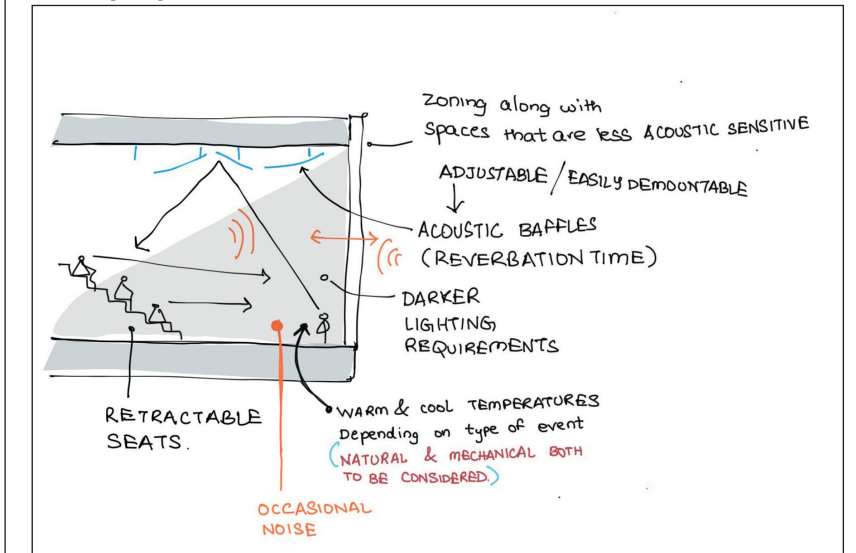 Zoning along with
Spaces that are less ACOUSTIC SENSITIVE
ADJUSTABLE / EASILY DEMOUNTABLE
ACOUSTIC BAFFLES
(REVERBATION TIME)
DARKER
LIGHTING
REQUIREMENTS
RETRACTABLE
SEATS.
WARM & COOL TEMPERATURES
Depending on type of event
(NATURAL & MECHANICAL BOTH
TO BE CONSIDERED.)
OCCASIONAL
NOISE